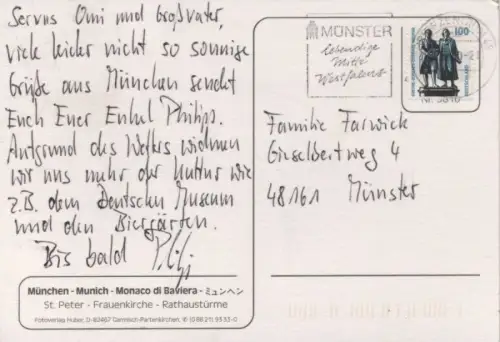 Servus Omi und Großvater,
viele leider nicht so sonnige
Grüße aus München sendet
Euch Euer Enkel Philipp.
Aufgrund des Wetters widmen
wir uns mehr der Kultur wie
z.B. dem Deutschen Museum
und den Biergärten.
Bis bald
München - Munich - Monaco di Baviera - ミュンヘン
St. Peter - Frauenkirche - Rathaustürme
Fotoverlag Huber, D-82467 Garmisch-Partenkirchen,
MÜNSTER
lebendige
Mitte
Westfalens
100
Familie Farwick
Giselbertweg 4
48161 Münster